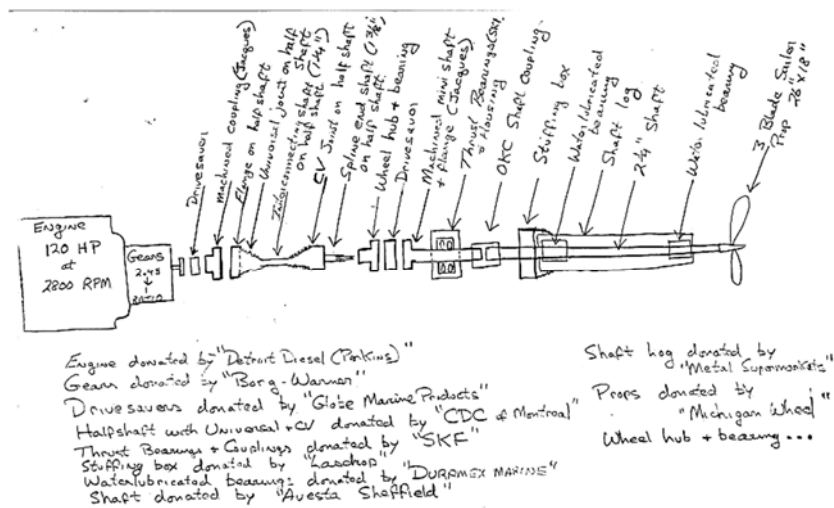 Drivesaver
Machined coupling (Jacques)
Flange on half shaft
Universal joint on half shaft
connecting shaft (1 1/4")
on half shaft
CV Joint on half shaft
Spline end shaft (1 3/8")
on half shaft
Wheel hub + bearing
Drivesaver
Machined mini shaft
+ flange (Jacques)
Thrust Bearings (SKF)
+ Housing
OKC Shaft Coupling
Stuffing box
Water lubricated
bearing
Shaft log
2 1/4" Shaft
Water lubricated
bearing
3 Blade Sailor
Prop 26" x 18"
Engine
120 HP
at
2800 RPM
Gears
2.45
Ratio
Engine donated by "Detroit Diesel (Perkins)"
Gears donated by "Borg-Warner"
Drivesavers donated by "Globe Marine Products"
Halfshaft with Universal + CV donated by "CDC of Montreal"
Thrust Bearings + Couplings donated by "SKF"
Stuffing box donated by
Waterlubricated bearings donated by "DURAMEX MARINE"
Shaft donated by "Avesta Sheffield"
Shaft log donated by
"Metal Supermarkets"
Props donated by
"Michigan Wheel"
Wheel hub + bearing...